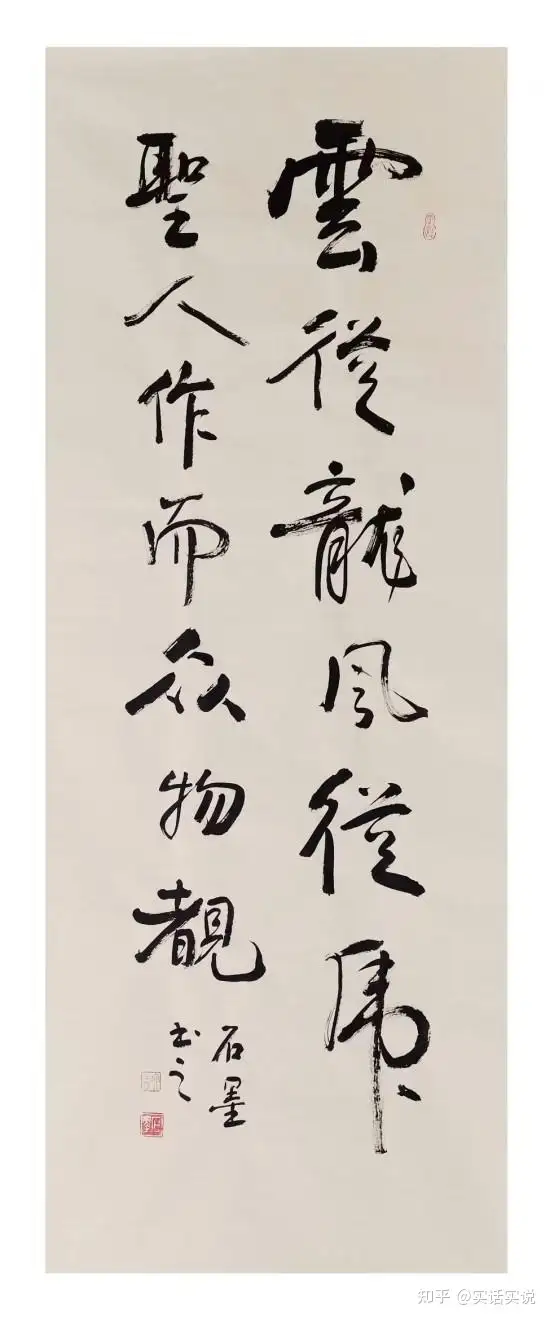 雲從龍風從虎
聖人作而众物覩
石墨
书之
知乎 @实话实说